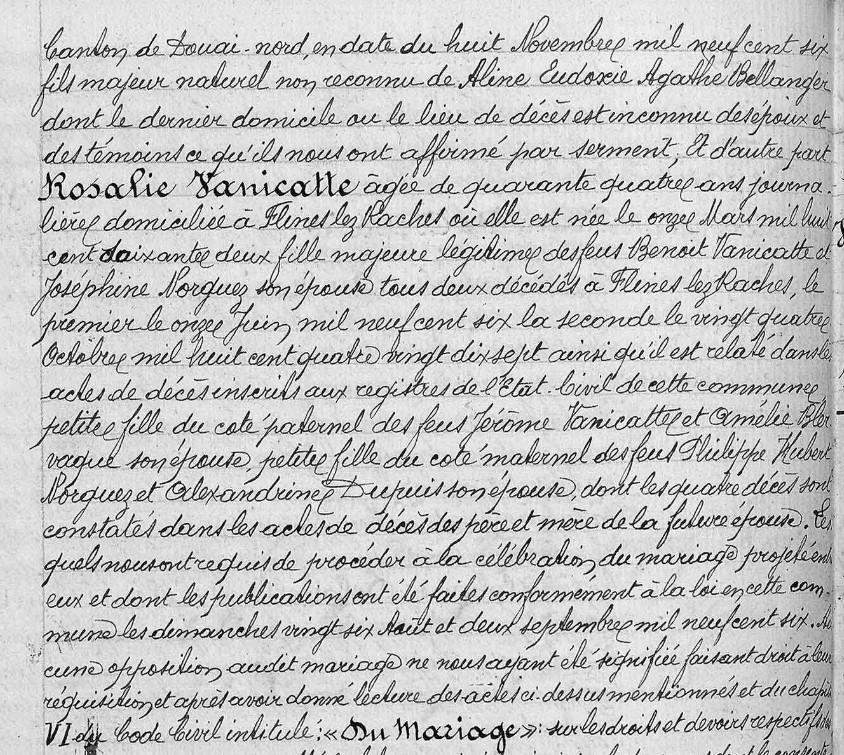 Canton de Douai-nord, en date du huit Novembre mil neuf cent six
fils majeur naturel non reconnu de Aline Eudoxie Agathe Bellanger
dont le dernier domicile ou le lieu de décès est inconnu des époux et
des témoins ce qu'ils nous ont affirmé par serment. Et d'autre part
Rosalie Vanicatte âgée de quarante quatre ans journa-
lière domiciliée à Flines lez Raches où elle est née le onze Mars mil huit
cent soixante deux fille majeure légitime des feus Benoit Vanicatte et
Joséphine Norguez son épouse tous deux décédés à Flines lez Raches, le
premier le onze Juin mil neuf cent six la seconde le vingt quatre
Octobre mil huit cent quatre vingt dix sept ainsi qu'il est relaté dans les
actes de décès inscrits aux registres de l'Etat-Civil de cette commune
petite fille du coté paternel des feus Jérôme Vanicatte et Amélie Bler
vaque son épouse, petite fille du coté maternel des feus Philippe Hubert
Norguez et Alexandrine Dupuis son épouse, dont les quatre décès sont
constatés dans les actes de décès des père et mère de la future épouse. Les
quels nous ont requis de procéder à la célébration du mariage projeté entre
eux et dont les publications ont été faites conformément à la loi en cette com-
mune les dimanches vingt six Août et deux septembre mil neuf cent six. Au
cune opposition audit mariage ne nous ayant été signifiée faisant droit à leur
réquisition et après avoir donné lecture des actes ci-dessus mentionnés et du chapitre
VI du Code Civil intitulé: « Du Mariage »: sur les droits et devoirs respectifs